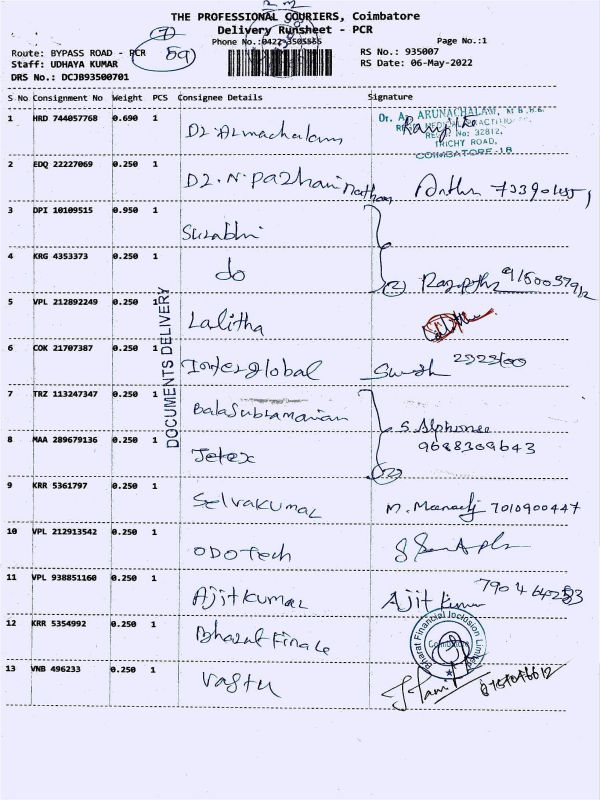 THE PROFESSIONAL COURIERS, Coimbatore
Delivery Runsheet - PCR
Phone No.:0422-3505555 Page No.:1
Route: BYPASS ROAD - PCR 7 89 RS No.: 935007
Staff: UDHAYA KUMAR RS Date: 06-May-2022
DRS No.: DCJB93500701
S No Consignment No Weight PCS Consignee Details Signature
1 HRD 744057768 0.690 1 Dr. Arunachalam Ranjith
Dr. A. ARUNACHALAM, M B.,B.S.
REGD. No: 32812,
TRICHY ROAD,
COIMBATORE-18
2 EDQ 22227069 0.250 1 Dr. N. Pazhaninathan
3 DPI 10109515 0.950 1 Surabhi
4 KRG 4353373 0.250 1 do 2
5 VPL 212892249 0.250 1 Lalitha
DOCUMENTS DELIVERY
6 COK 21707387 0.250 1 Interglobal
7 TRZ 113247347 0.250 1 BalaSubramanian
8 MAA 289679136 0.250 1 Jetex S. Alphonse
9688309643
9 KRR 5361797 0.250 1 Selvakumar 7010900447
10 VPL 212913542 0.250 1 ODOTech
11 VPL 938851160 0.250 1 Ajitkumar Ajit Kumar
12 KRR 5354992 0.250 1 Bharat Finance
Bharat Financial Inclusion Limited
Coimbatore
13 VNB 496233 0.250 1 Vastu